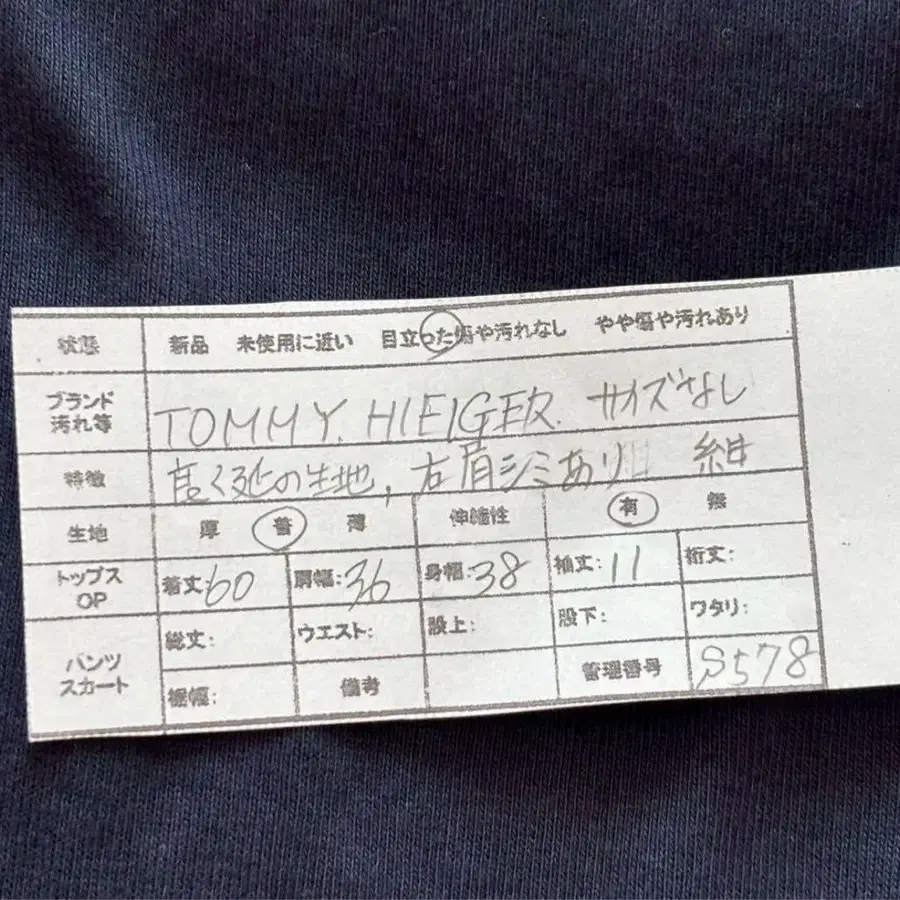 状態 新品 未使用に近い 目立った傷や汚れなし やや傷や汚れあり
ブランド 汚れ等 TOMMY. HIEIGER. サイズなし
特徴 良く延の生地, 右肩シミあり 紺
生地 厚 普 薄 伸縮性 有 無
トップス OP 着丈:60 肩幅:36 身幅:38 袖丈:11 裄丈:
パンツ スカート 総丈: ウエスト: 股上: 股下: ワタリ:
裾幅: 備考 管理番号 S578